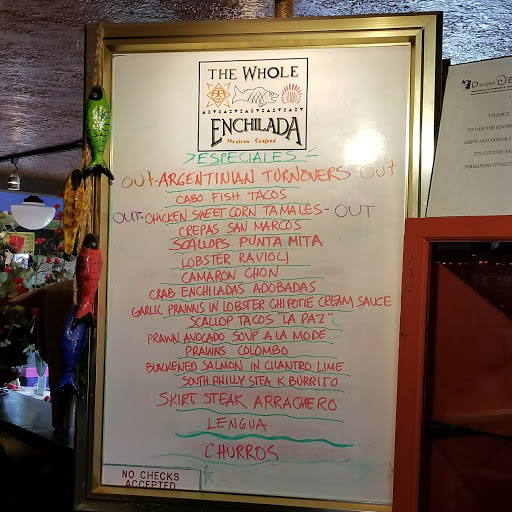 THE WHOLE
ENCHILADA
Mexican Seafood
ESPECIALES
OUT - ARGENTINIAN TURNOVERS - OUT
CABO FISH TACOS
OUT - CHICKEN SWEET CORN TAMALES - OUT
CREPAS SAN MARCOS
SCALLOPS PUNTA MITA
LOBSTER RAVIOLI
CAMARON CHON
CRAB ENCHILADAS ADOBADAS
GARLIC PRAWNS IN LOBSTER CHIPOTLE CREAM SAUCE
SCALLOP TACOS "LA PAZ"
PRAWN AVOCADO SOUP A LA MODE
PRAWNS COLOMBO
BLACKENED SALMON IN CILANTRO LIME
SOUTH PHILLY STEAK BURRITO
SKIRT STEAK ARRACHERO
LENGUA
CHURROS
NO CHECKS
ACCEPTED